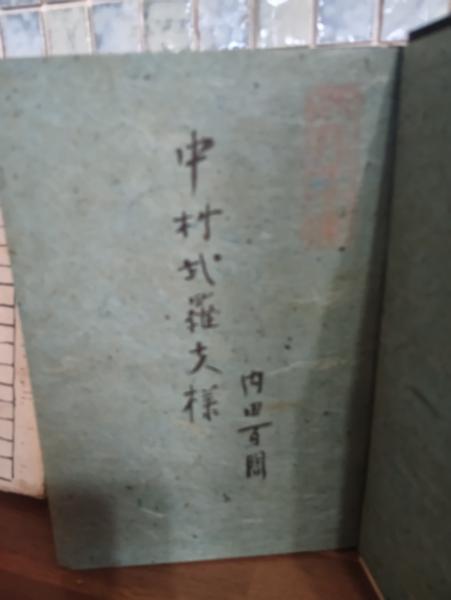 中村武羅夫様
内田百間